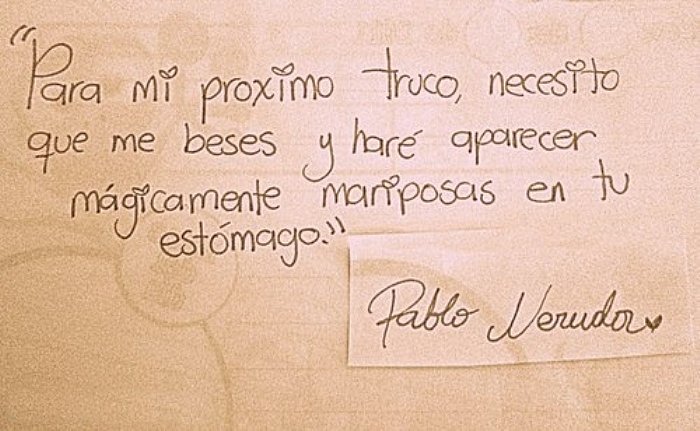 "Para mi proximo truco, necesito
que me beses y haré aparecer
mágicamente mariposas en tu
estómago."
Pablo Neruda